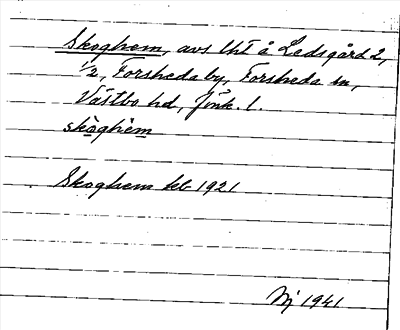 Skoghem, avs lht å Ledsgård 2,
1/2, Forsheda by, Forsheda sn,
Västbo hd, Jönk. l.
skòghèm
Skoghem kb 1921
Nj 1941